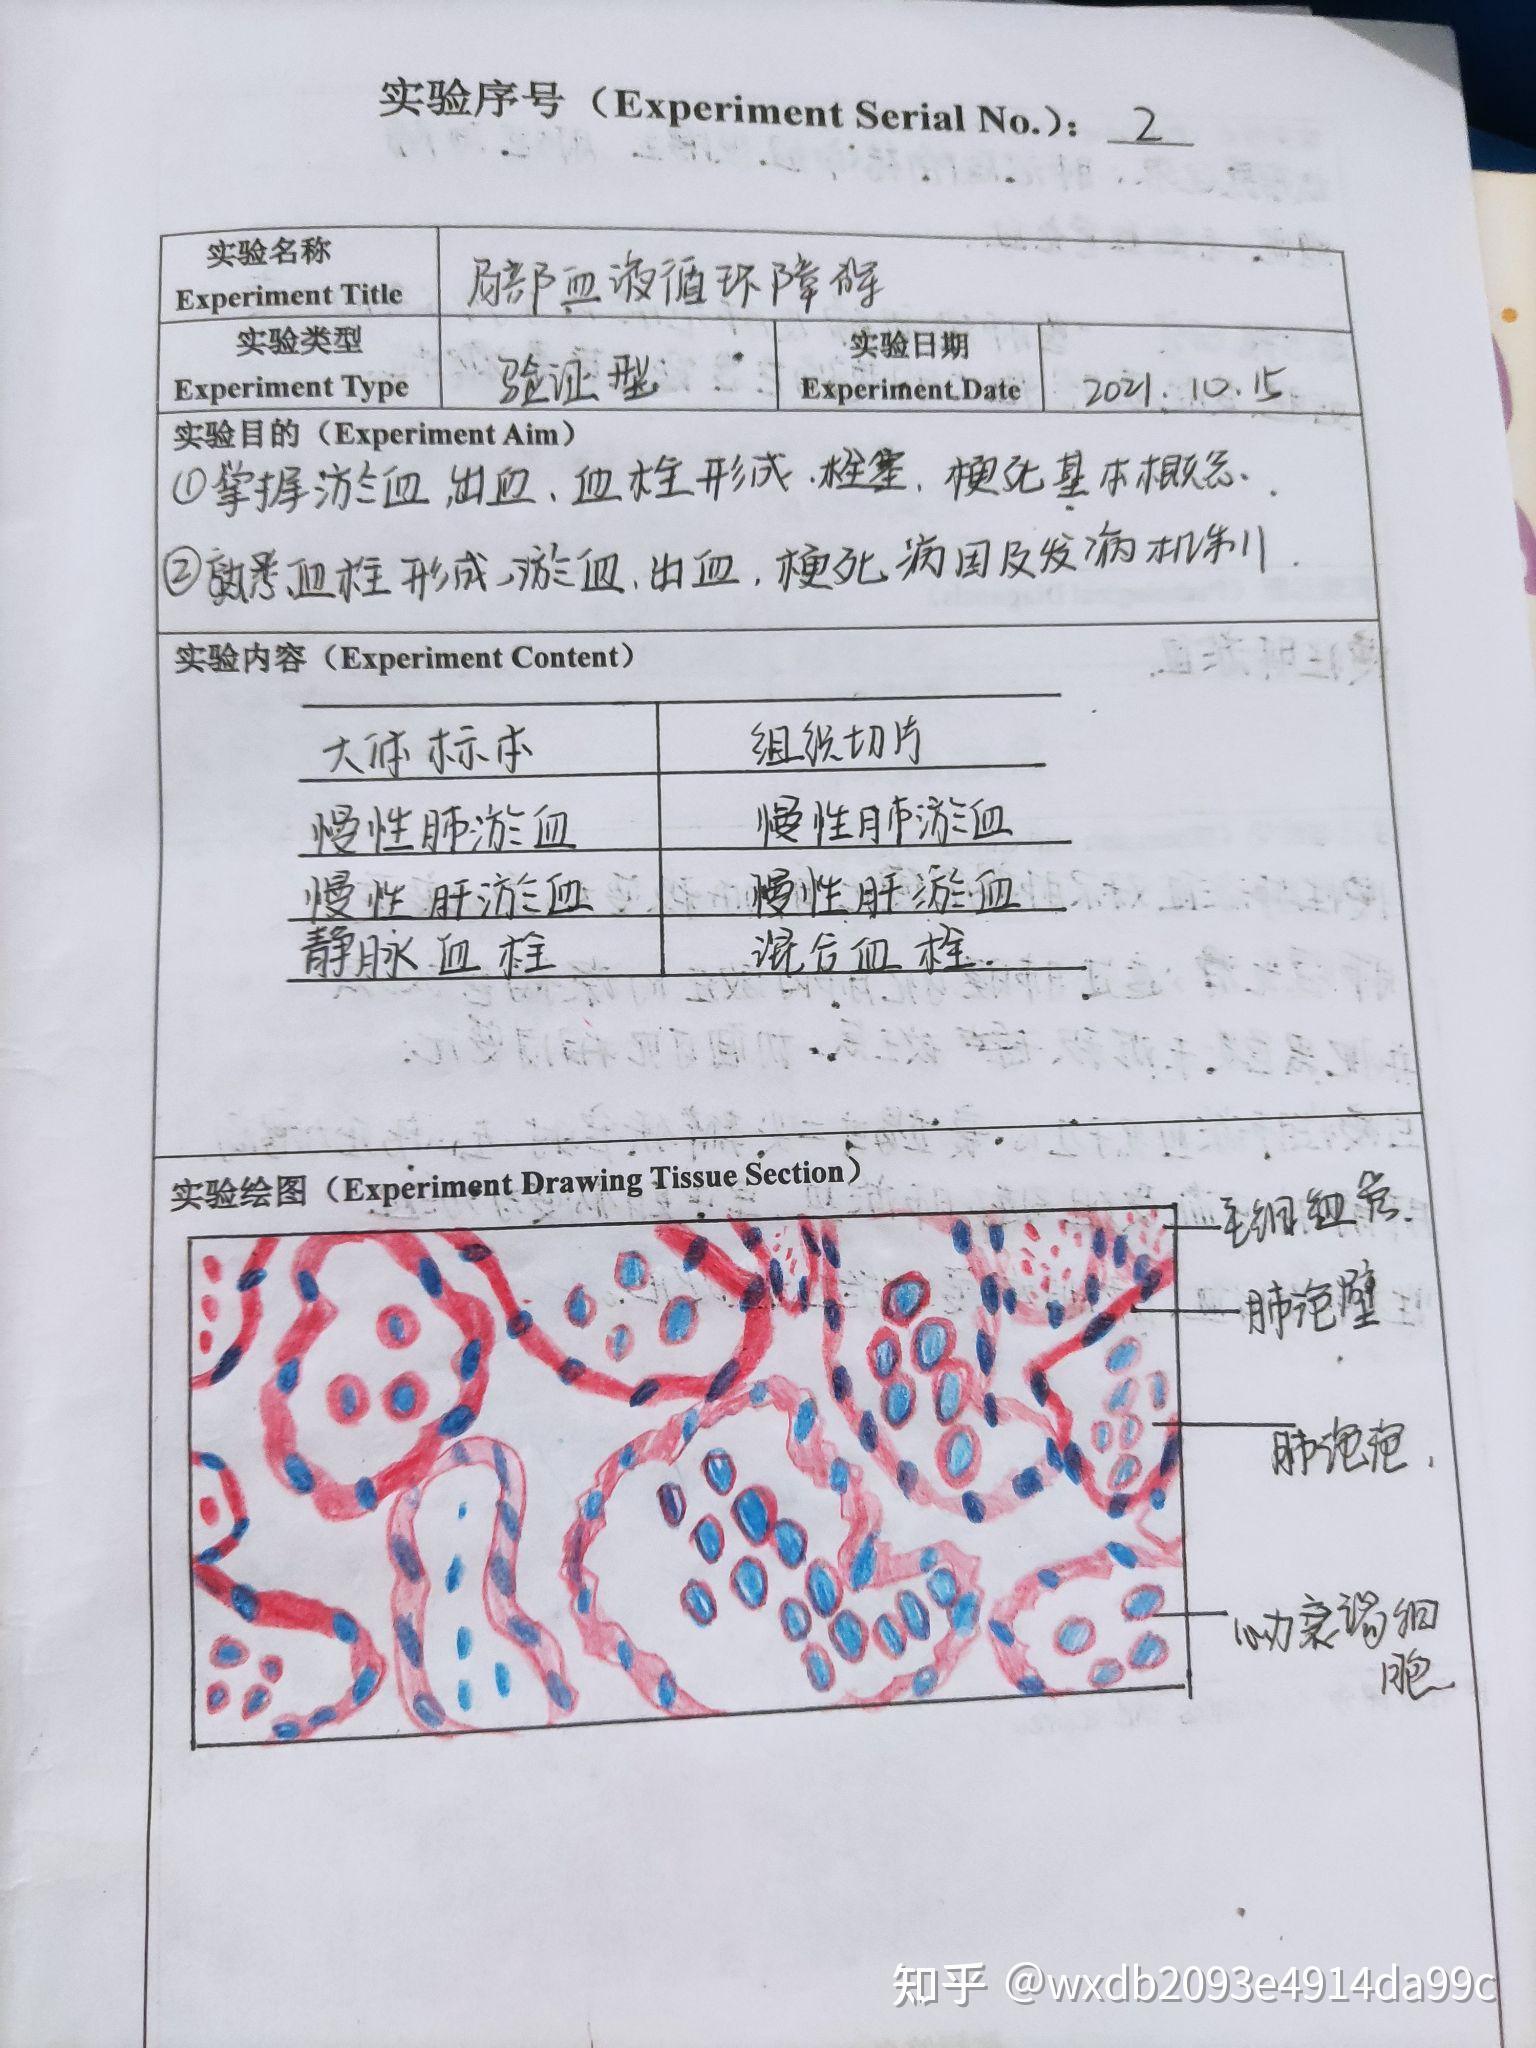 实验序号（Experiment Serial No.）：2
实验名称
Experiment Title
局部血液循环障碍
实验类型
Experiment Type
验证型
实验日期
Experiment Date
2021.10.15
实验目的（Experiment Aim）
①掌握淤血、出血、血栓形成、栓塞、梗死基本概念.
②熟悉血栓形成、淤血、出血、梗死病因及发病机制.
实验内容（Experiment Content）
大体标本 组织切片
慢性肺淤血 慢性肺淤血
慢性肝淤血 慢性肝淤血
静脉血栓 混合血栓.
实验绘图（Experiment Drawing Tissue Section）
毛细血管
肺泡壁
肺泡
心力衰竭细
胞
知乎 @wxdb2093e4914da99c